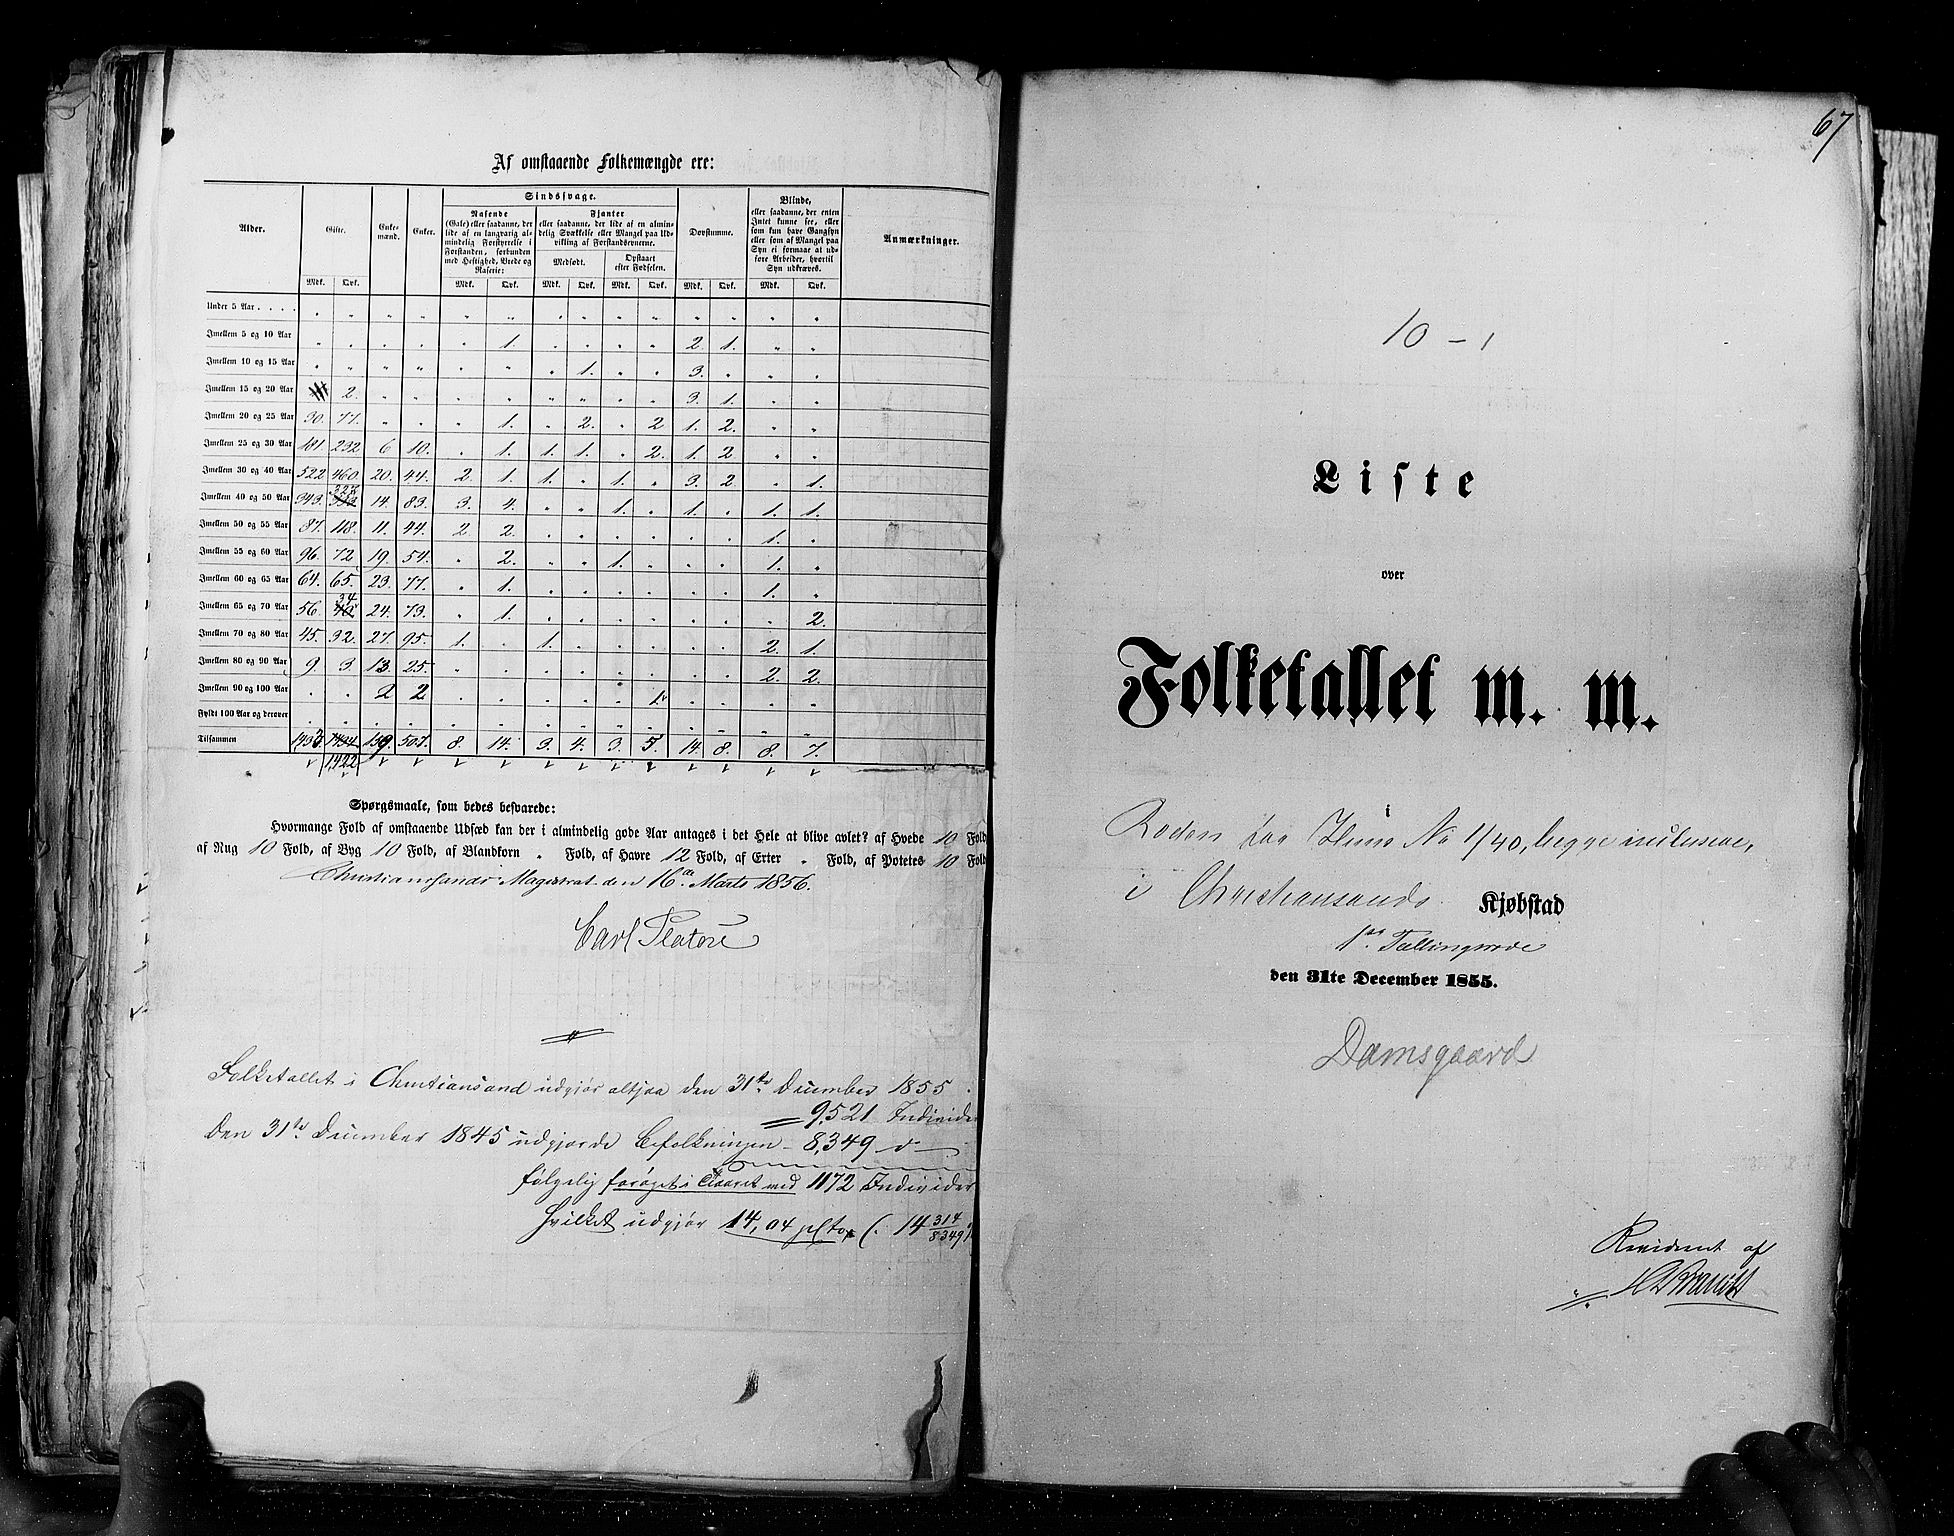 Af omstaaende Folkemængde ere:
Alder. Gifte. Enke-mænd. Enker. Sindssvage. Døvstumme. Blinde, Anmærkninger.
Rasende (Gale) eller saadanne, der lide af en langvarig almindelig Forstyrrelse i Forstanden, forbunden med Heftighed, Vrede og Raserie:
Fjanter eller saadanne, der lide af en almindelig Svækkelse eller Mangel paa Udvikling af Forstandsevnerne.
Medfødt. Opstaaet efter Fødselen.
eller saadanne, der enten Intet kunne see, eller som kun have Gangsyn eller som af Mangel paa Syn ei formaae at udføre Arbeider, hvortil Syn udkræves.
Mdk. Qvk. Mdk. Qvk. Mdk. Qvk. Mdk. Qvk. Mdk. Qvk. Mdk. Qvk.
Under 5 Aar . . . . " " " " " " " " " " " " " "
Imellem 5 og 10 Aar " " " " " 1. " " " " 2. 1. " "
Imellem 10 og 15 Aar " " " " " " " 1. " " 3. " " "
Imellem 15 og 20 Aar 2. " " " " " " " " 3. 1. " "
Imellem 20 og 25 Aar 30. 77. " " " 1. " 2. " 2 1. 2. " "
Imellem 25 og 30 Aar 181. 232 6 10. " 1. 1. 1. " 2. 1. 2 " "
Imellem 30 og 40 Aar 522 460. 20. 44. 2. 1. 1. " 1. " 3. 2. " 1.
Imellem 40 og 50 Aar 343. 327 14. 83. 3. 4. " " 1. " 1. " 1. 1.
Imellem 50 og 55 Aar 87. 118. 11. 44. 2 2. " " " " " " 1. "
Imellem 55 og 60 Aar 96. 72. 19. 54. " 2. " " 1. " " " 1. "
Imellem 60 og 65 Aar 64. 65. 23. 77. " 1. " " " " " " 1. "
Imellem 65 og 70 Aar 56. 34 24. 73. " 1. " " " " " " " 2.
Imellem 70 og 80 Aar 45. 32. 27. 95. 1. " 1. " " " " " 2. 1.
Imellem 80 og 90 Aar 9. 3. 13. 25. " " " " " " " " 2. 2.
Imellem 90 og 100 Aar " " 2 2. " " " " " 1. " " " "
Fyldt 100 Aar og derover " " " " " " " " " " " " " "
Tilsammen 1433 1434 159. 507. 8. 14. 3. 4. 3. 5. 14. 8. 8. 7.
1422
Spørgsmaale, som bedes besvarede:
Hvormange Fold af omstaaende Udsæd kan der i almindelig gode Aar antages i det Hele at blive avlet? af Hvede 10 Fold
af Rug 10 Fold, af Byg 10 Fold, af Blandkorn " Fold, af Havre 12 Fold, af Erter " Fold, af Potetes 10 Fold
Christianssands Magistrat den 16de Marts 1856.
Carl Platou
Folketallet i Christiansand udgjør altsaa den 31te December 1855
= 9,521 Individer
Den 31te December 1845 udgjorde Befolkningen - 8,349 d-
følgelig forøget i 10aaret med 1172 Individer
Hvilket udgjør 14,04 pCto (: 14 314/8349 :)
67
10 - 1
Liste
over
Folketallet m. m.
i
Roden fra Huus No 1/40, begge inclusive,
i Christiansands Kjøbstad
1ste Tællingsrode
den 31te December 1855.
Damsgaard
Revideret af